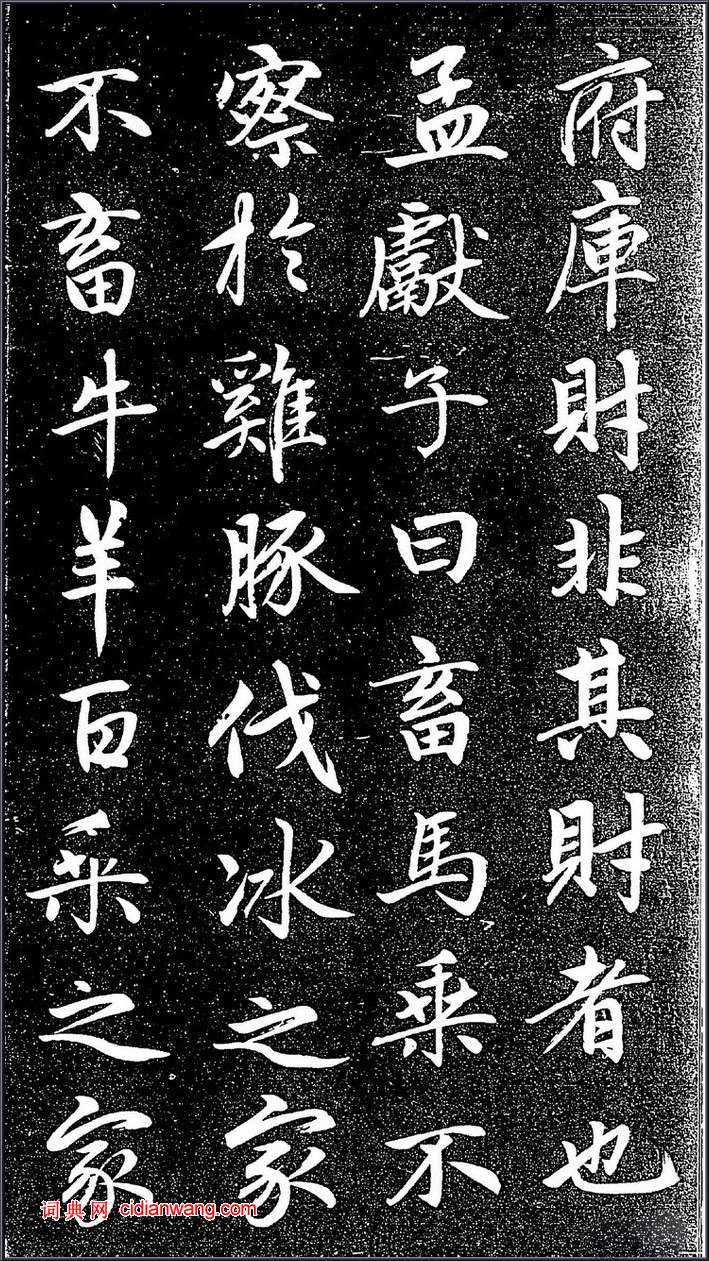 府庫財非其財者也
孟獻子曰畜馬乘不
察於雞豚伐冰之家
不畜牛羊百乘之家
词典网 cidianwang.com